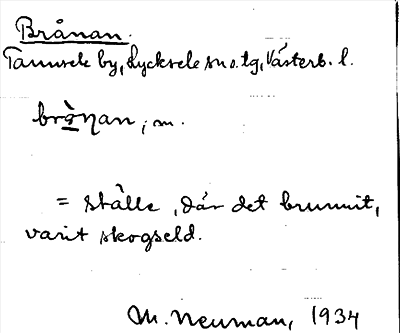 Brånan.
Tannsele by, Lycksele sn o. lg, Västerb. l.
brå̀nan, m.
= ställe, där det brunnit,
varit skogseld.
M. Neuman, 1934